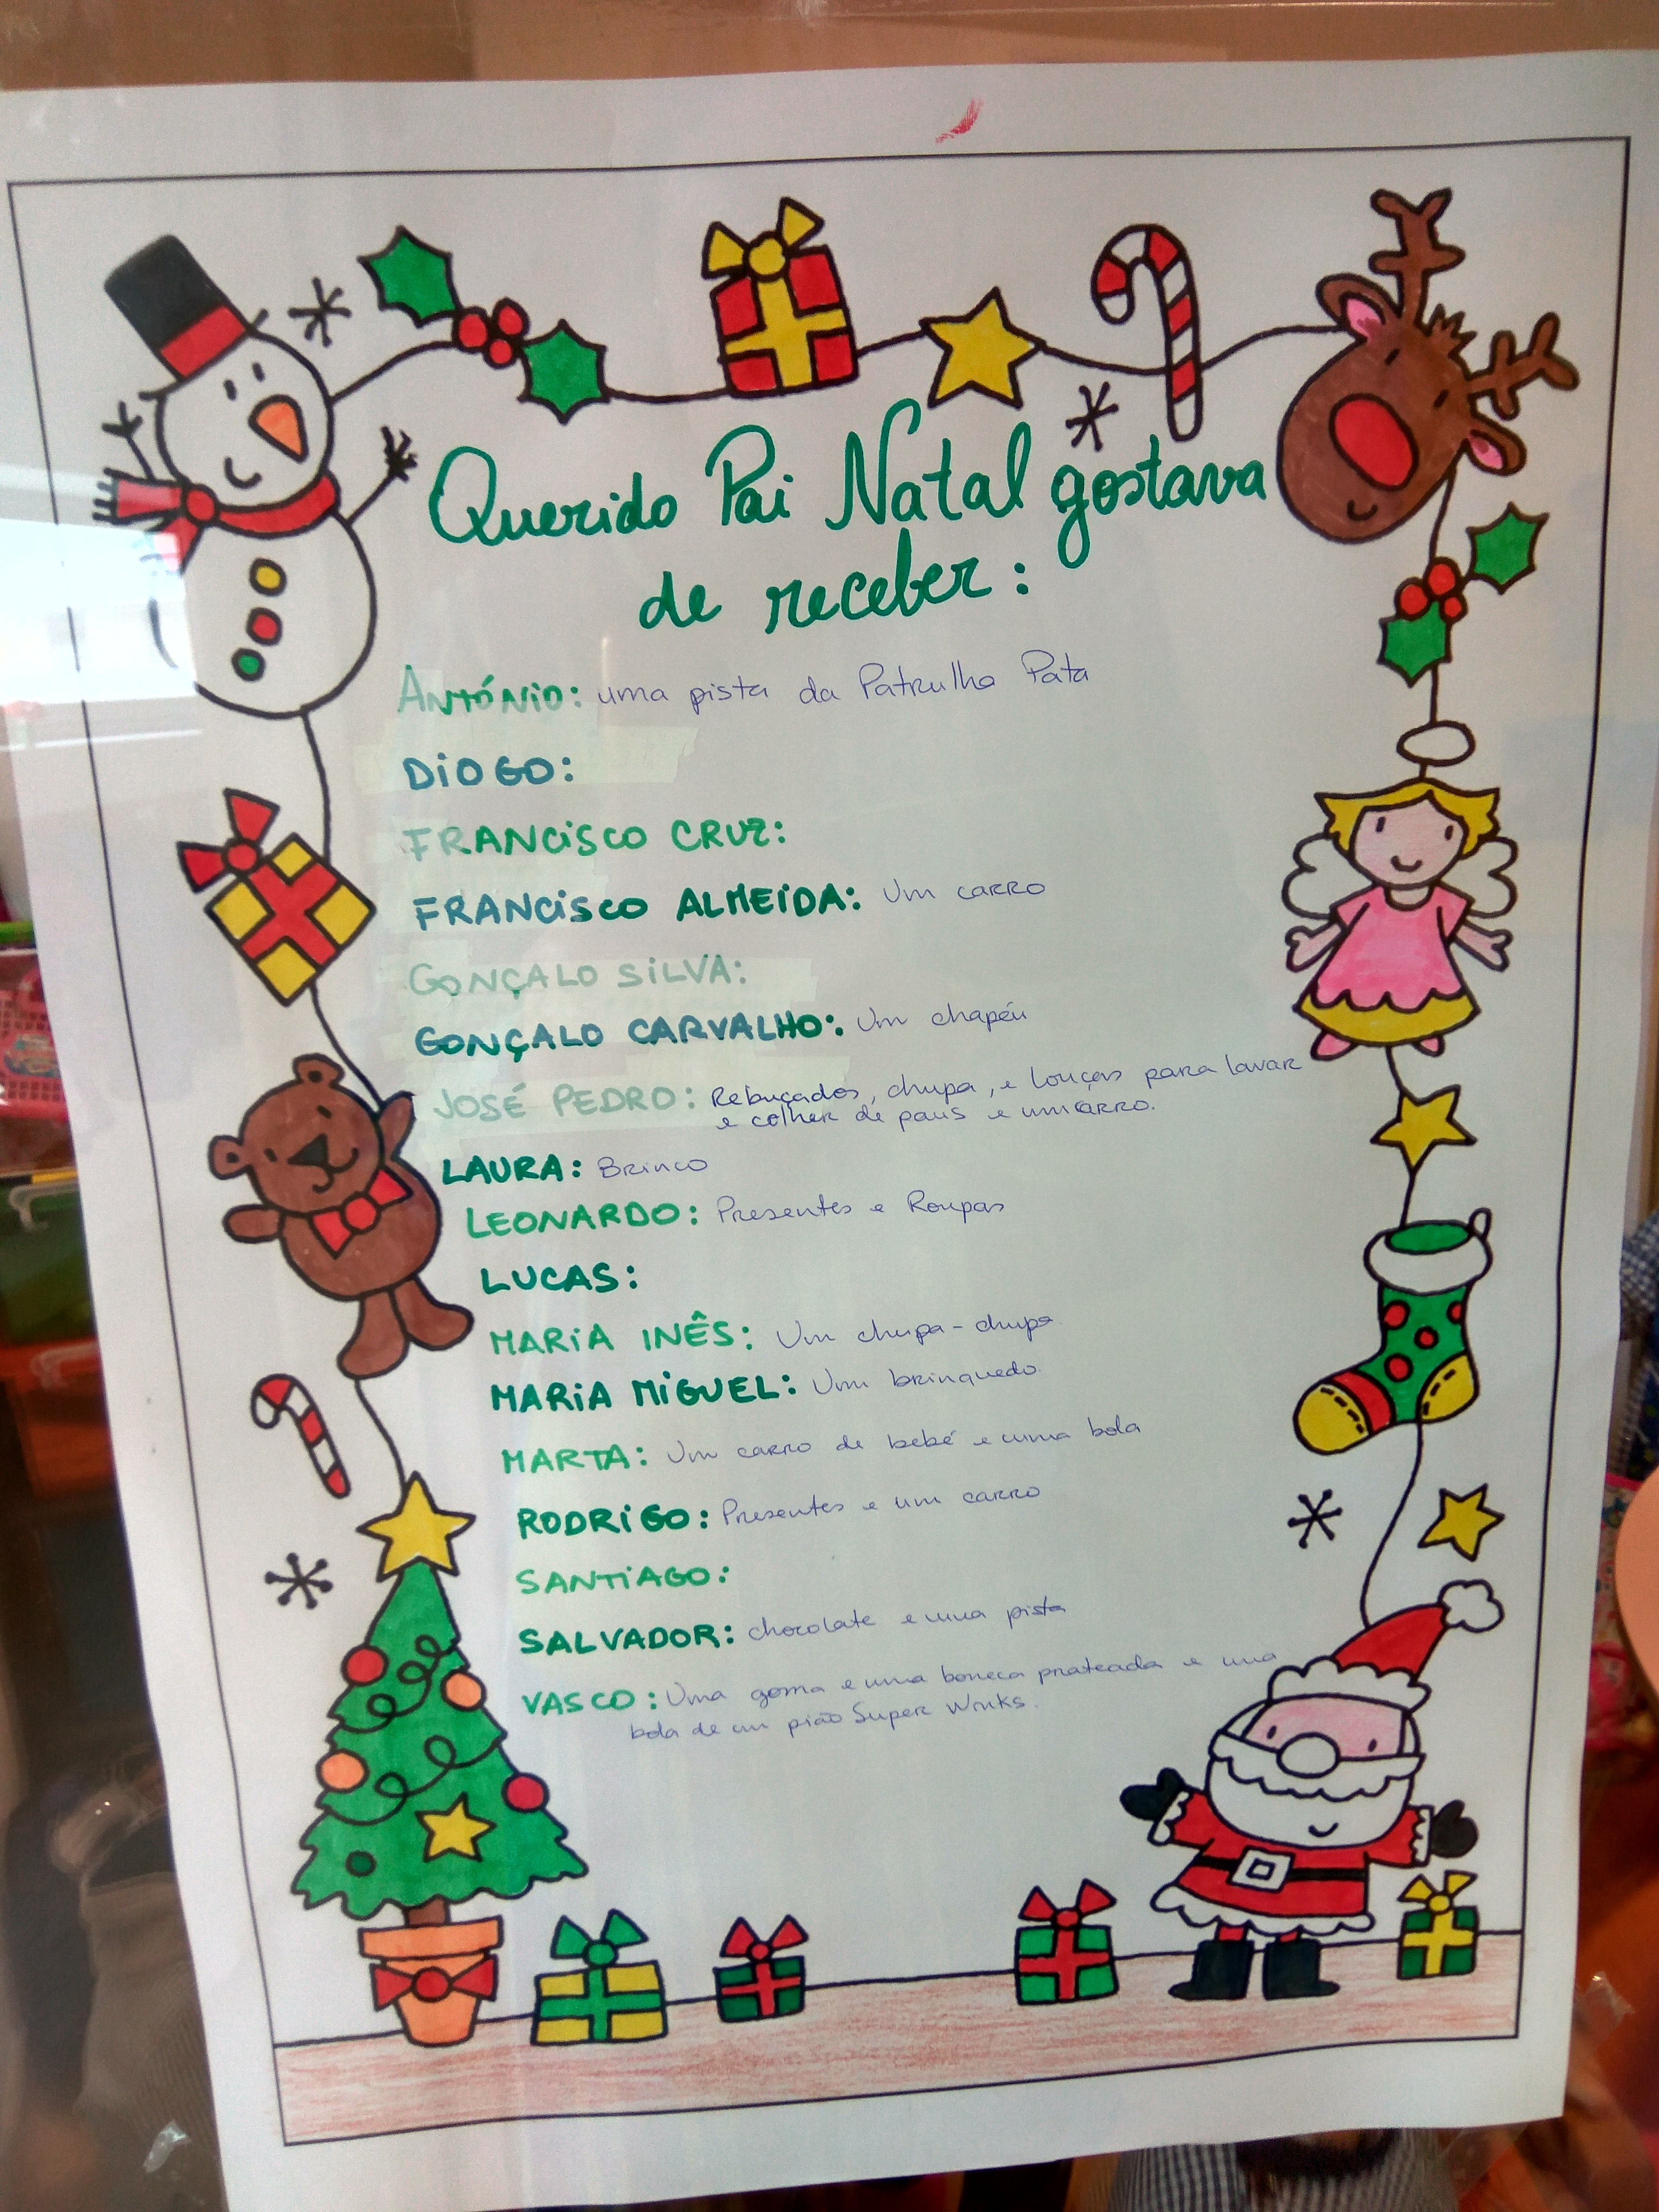 Querido Pai Natal gostava
de receber:
ANTÓNiO: uma pista da Patrulha Pata
DiOGO:
FRANCiSCO CRUZ:
FRANCiSCO ALMEiDA: Um carro
GONÇALO SiLVA:
GONÇALO CARVALHO: Um chapéu
JOSÉ PEDRO: Rebuçados, chupa, e louças para lavar
e colher de paus e um carro.
LAURA: Brinco
LEONARDO: Presentes e Roupas
LUCAS:
MARiA INÊS: Um chupa-chupa
MARiA MiGUEL: Um brinquedo.
MARTA: Um carro de bebé e uma bola
RODRiGO: Presentes e um carro
SANTiAGO:
SALVADOR: chocolate e uma pista
VASCO: Uma goma e uma boneca prateada e uma
bola de um pião Super Winks.